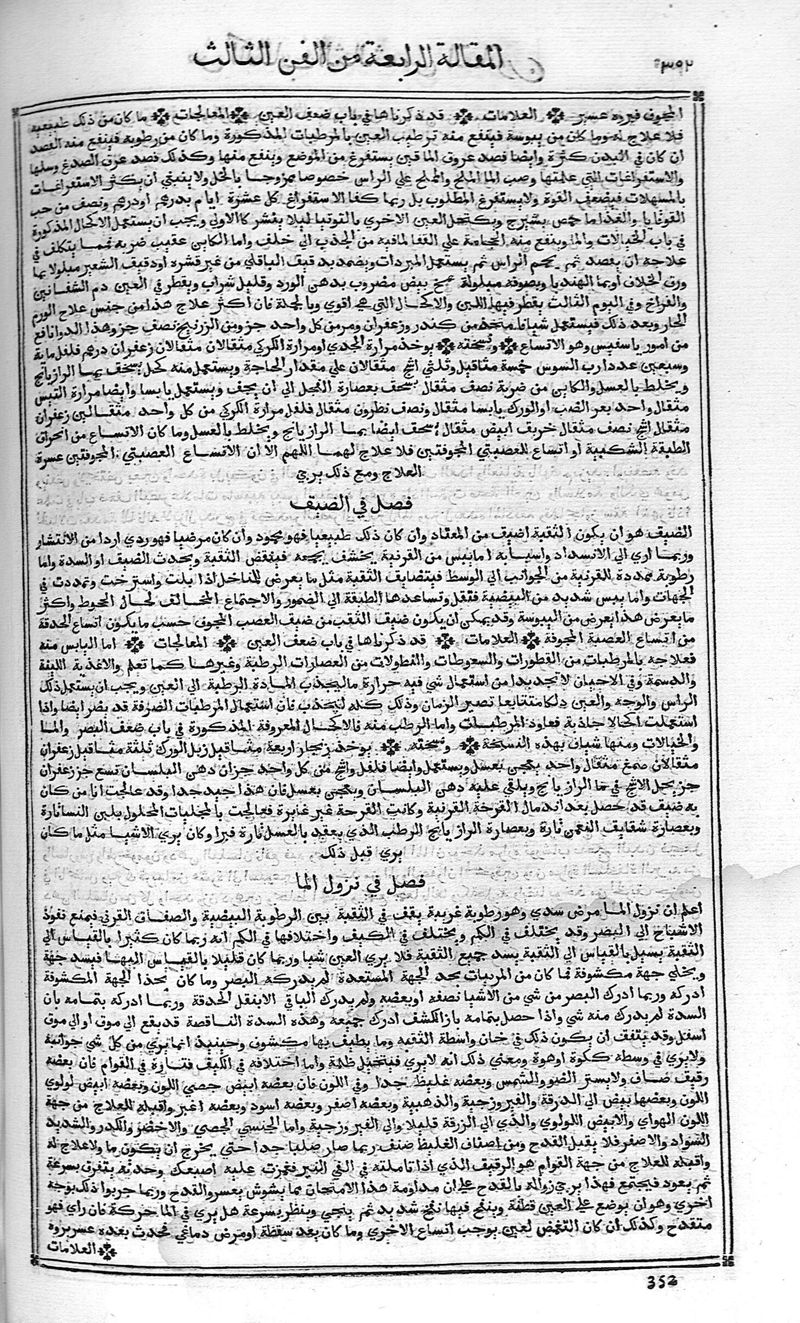 المقالة الرابعة من الفن الثالث
٣٥٢
المجوف فبروه عسير العلامات قد ذكرناها في باب ضعف العين المعالجات ما كان من ذلك طبيعيه
فلا علاج له وما كان من يبوسة فينفع منه ترطيب العين بالمرطبات المذكورة وما كان من رطوبة فينفع منه الفصد
ان كان في البدن كثرة وايضا فصد عروق الماقين يستفرغ من الموضع وينفع منها وكذلك فصد عرق الصدغ وسلها
والاستفراغات التي علمتها وصب الما الملح والمملح علي الراس خصوصا ممزوجا بالخل ولا ينبغي ان يكثر الاستفراغات
بالمسهلات فيضعف القوة ولا يستفرغ المطلوب بل ربما كفا الاستفراغ كل عشرة ايام بدرهم او درهم ونصف من حب
القوقايا والغذا ما حمص بشيرج ويكتحل العين الاخري بالتوتيا ليلا ينتشر كالاولي ويجب ان يستعمل الاكحال المذكورة
في باب الخيالات والما وينفع منه الحجامة علي القفا لما فيه من الجذب الي خلف واما الكاين عقيب ضربة فمما يتكلف في
علاجه ان يفصد ثم يحجم الراس ثم يستعمل المبردات ويضمد بدقيق الباقلي من غير قشره او دقيق الشعير مبلولا بما
ورق الخلاف او بما الهندبا وبصوفة مبلولة بمح بيض مضروب بدهن الورد وقليل شراب ويقطر في العين دم الشفانين
والفراخ وفي اليوم الثالث يقطر فيها اللبن والاكحال التي هي اقوي وبالجملة فان اكثر علاج هذا من جنس علاج الورم
الحار وبعد ذلك فيستعمل شيافا متخذ من كندر وزعفران ومر من كل واحد جزو من الزرنيخ نصف جزو وهذا الدوا نافع
من امور ياسفيس وهو الاتساع ونسخته يوخذ مرارة الجدي او مرارة الكركي مثقالان مثقالان زعفران درهم فلفل ماية
وسبعين عددا رب السوس خمسة مثاقيل وثلثي اشج مثقالان علي مقدار الحاجة ويستعمل منه كحل يسحف بما الرازيانج
ويخلط بالعسل والكاين من ضربة نصف مثقال يسحف بعصارة الفجل الي ان يجف ويستعمل يابسا وايضا مرارة التيس
مثقال واحد بعر الضب او الورك يابسا مثقال ونصف نطرون مثقال فلفل مرارة الكركي من كل واحد مثقالين زعفران
مثقال اشج نصف مثقال خربف ابيض مثقال يسحف ايضا بما الرازيانج ويخلط بالعسل وما كان الاتساع من انخراق
الطبقة الشبكية او اتساع العصبتي المجوفتين فلا علاج لهما اللهم الا ان الاتساع العصبتي المجوفتين عسرة
العلاج ومع ذلك بري
فصل في الضيق
الضيف هو ان يكون الثقبة اضيف من المعتاد وان كان ذلك طبيعيا فهو محمود وان كان مرضيا فهو ردي اردا من الانتشار
وربما اري الي الانسداد واسبابه اما يبس من القرنية يخشف يجمعه فينقض الثقبة ويحدث الضيف او السدة واما
رطوبة ممددة للقرنية من الجوانب الي الوسط فيتضايف الثقبة مثل ما يعرض للناخل اذا بلت واسترخت وتمددت في
الجهات واما يبس شديد من البيضية فقلل وتساعدها الطبقة الي الضمور والاجتماع المخالف لحال الجحوظ واكثر
ما يعرض هذا يعرض من اليبوسة وقد يمكن ان يكون ضيف الثقب من ضيف العصب المجوف حسب ما يكون اتساع الحدقة
من اتساع العصبة المجوفة العلامات قد ذكرناها في باب ضعف العين المعالجات اما اليابس منه
فعلاجه بالمرطبات من القطورات والسعوطات والنطولات من العصارات الرطبة وغيرها كما تعلم والاغذية اللينة
والدسمة وفي الاحيان لا تجد بدا من استعمال شي فيه حرارة ما ليجذب المادة الرطبة الي العين ويجب ان يستعمل ذلك
الراس والوجه والعين دلكا متتابعا تصير الزمان وذلك كله ليجذب فان استعمال المرطبات الصرفة قد يضر ايضا واذا
استعملت اكحالا جاذبة فعاود المرطبات واما الرطب منه فالاكحال المعروفة المذكورة في باب ضعف البصر والما
والخيالات ومنها شياف بهذه النسخة ونسخته يوخذ زنجار اربعة مثاقيل زبل الورك ثلثة مثاقيل زعفران
مثقالان صمغ مثقال واحد يعجن بعسل ويستعمل وايضا فلفل واشج من كل واحد جزان دهن البلسان تسع جز زعفران
جز يحل الاشج في ما الرازيانج ويلقي عليه دهن البلسان ويعجن بعسل فان هذا جيد جدا وقد عالجت انا من كان
به ضيف قد حصل بعد اندمال القرحة القرنية وكانت القرحة غير غايرة فعالجت بالمجلبات المحلول بلبن النسا تارة
وبعصارة شقايف النعمن تارة وبعصارة الرازيانج الرطب الذي يعقد بالعسل تارة فبرا وكان يري الاشيا مثل ما كان
يري قبل ذلك
فصل في نزول الما
اعلم ان نزول الما مرض سدي وهو رطوبة غريبة يقف في الثقبة بين الرطوبة البيضية والصفاق القرني فيمنع نفوذ
الاشباح الي البصر وقد يختلف في الكم ويختلف في الكيف واختلافها في الكم انه ربما كان كثيرا بالقياس الي
الثقبة يسيل بالقياس الي الثقبة يسد جميع الثقبة فلا يري العين شيا وربما كان قليلا بالقياس اليها فيسد جهة
ويخلي جهة مكشوفة فما كان من المرييات بحد الجهة المستعدة لم يدركه البصر وما كان بحذا الجهة المكشوفة
ادركه وربما ادرك البصر من شي من الاشيا نصفه او بعضه ولم يدرك الباقي الا بنقل الحدقة وربما ادركه بتمامه بان
السدة لم يدرك منه شي واذا حصل بتمامه بازا الكشف ادرك جميعه وهذه السدة الناقصة قد يقع الي موق او الي موق
اسفل وقد يتفف ان يكون ذلك في خان واسطة الثقبه وما يطيف بها مكشوف وحينيذ انما يري من كل شي جوانبه
ولا يري في وسطه ككوة او هوة ومعني ذلك انه لا يري فيتخيل ظلمة واما اختلافه في الكيف فتارة في القوام فان بعضه
رقيف صاف ولا يستر الضو والشمس وبعضه غليظ جدا وفي اللون فان بعضه ابيض جصي اللون وبعضه ابيض لولوي
اللون وبعضها بيض الي الدرقة والفيروزجية والذهبية وبعضه اصفر وبعضه اسود وبعضه اغبر واقبله للعلاج من جهة
اللون الهواي والابيض اللولوي والذي الي الزرقة قليلا والي الفيروزجية واما الجنسي الجصي والاخضر والكدر والشديد
السواد والاصفر فلا يقبل القدح ومن اصناف الغليظ صنف ربما صار صلبا جدا حتي يخرج ان يكون ما ولا علاج له
واقبله للعلاج من جهة القوام هو الرقيف الذي اذا تاملته في الفي النير فغمزت عليه اصبعك وحدته يتفرق بسرعة
ثم يعود فيجتمع فهذا يرجي زواله بالقدح علي ان مداومة هذا الامتحان مما يشوش ويعسر القدح وربما جربوا ذلك بوجه
اخري وهو ان يوضع علي العين قطنة وينفخ فيها نفخ شديد ثم ينحي وينظر بسرعة هل يري في الما حركة فان راي فهو
منقدح وكذلك ان كان التغميض لعين يوجب اتساع الاخري وما كان بعد سقطة او مرض دماغي فحدث بعده عسر بروه
العلامات
352